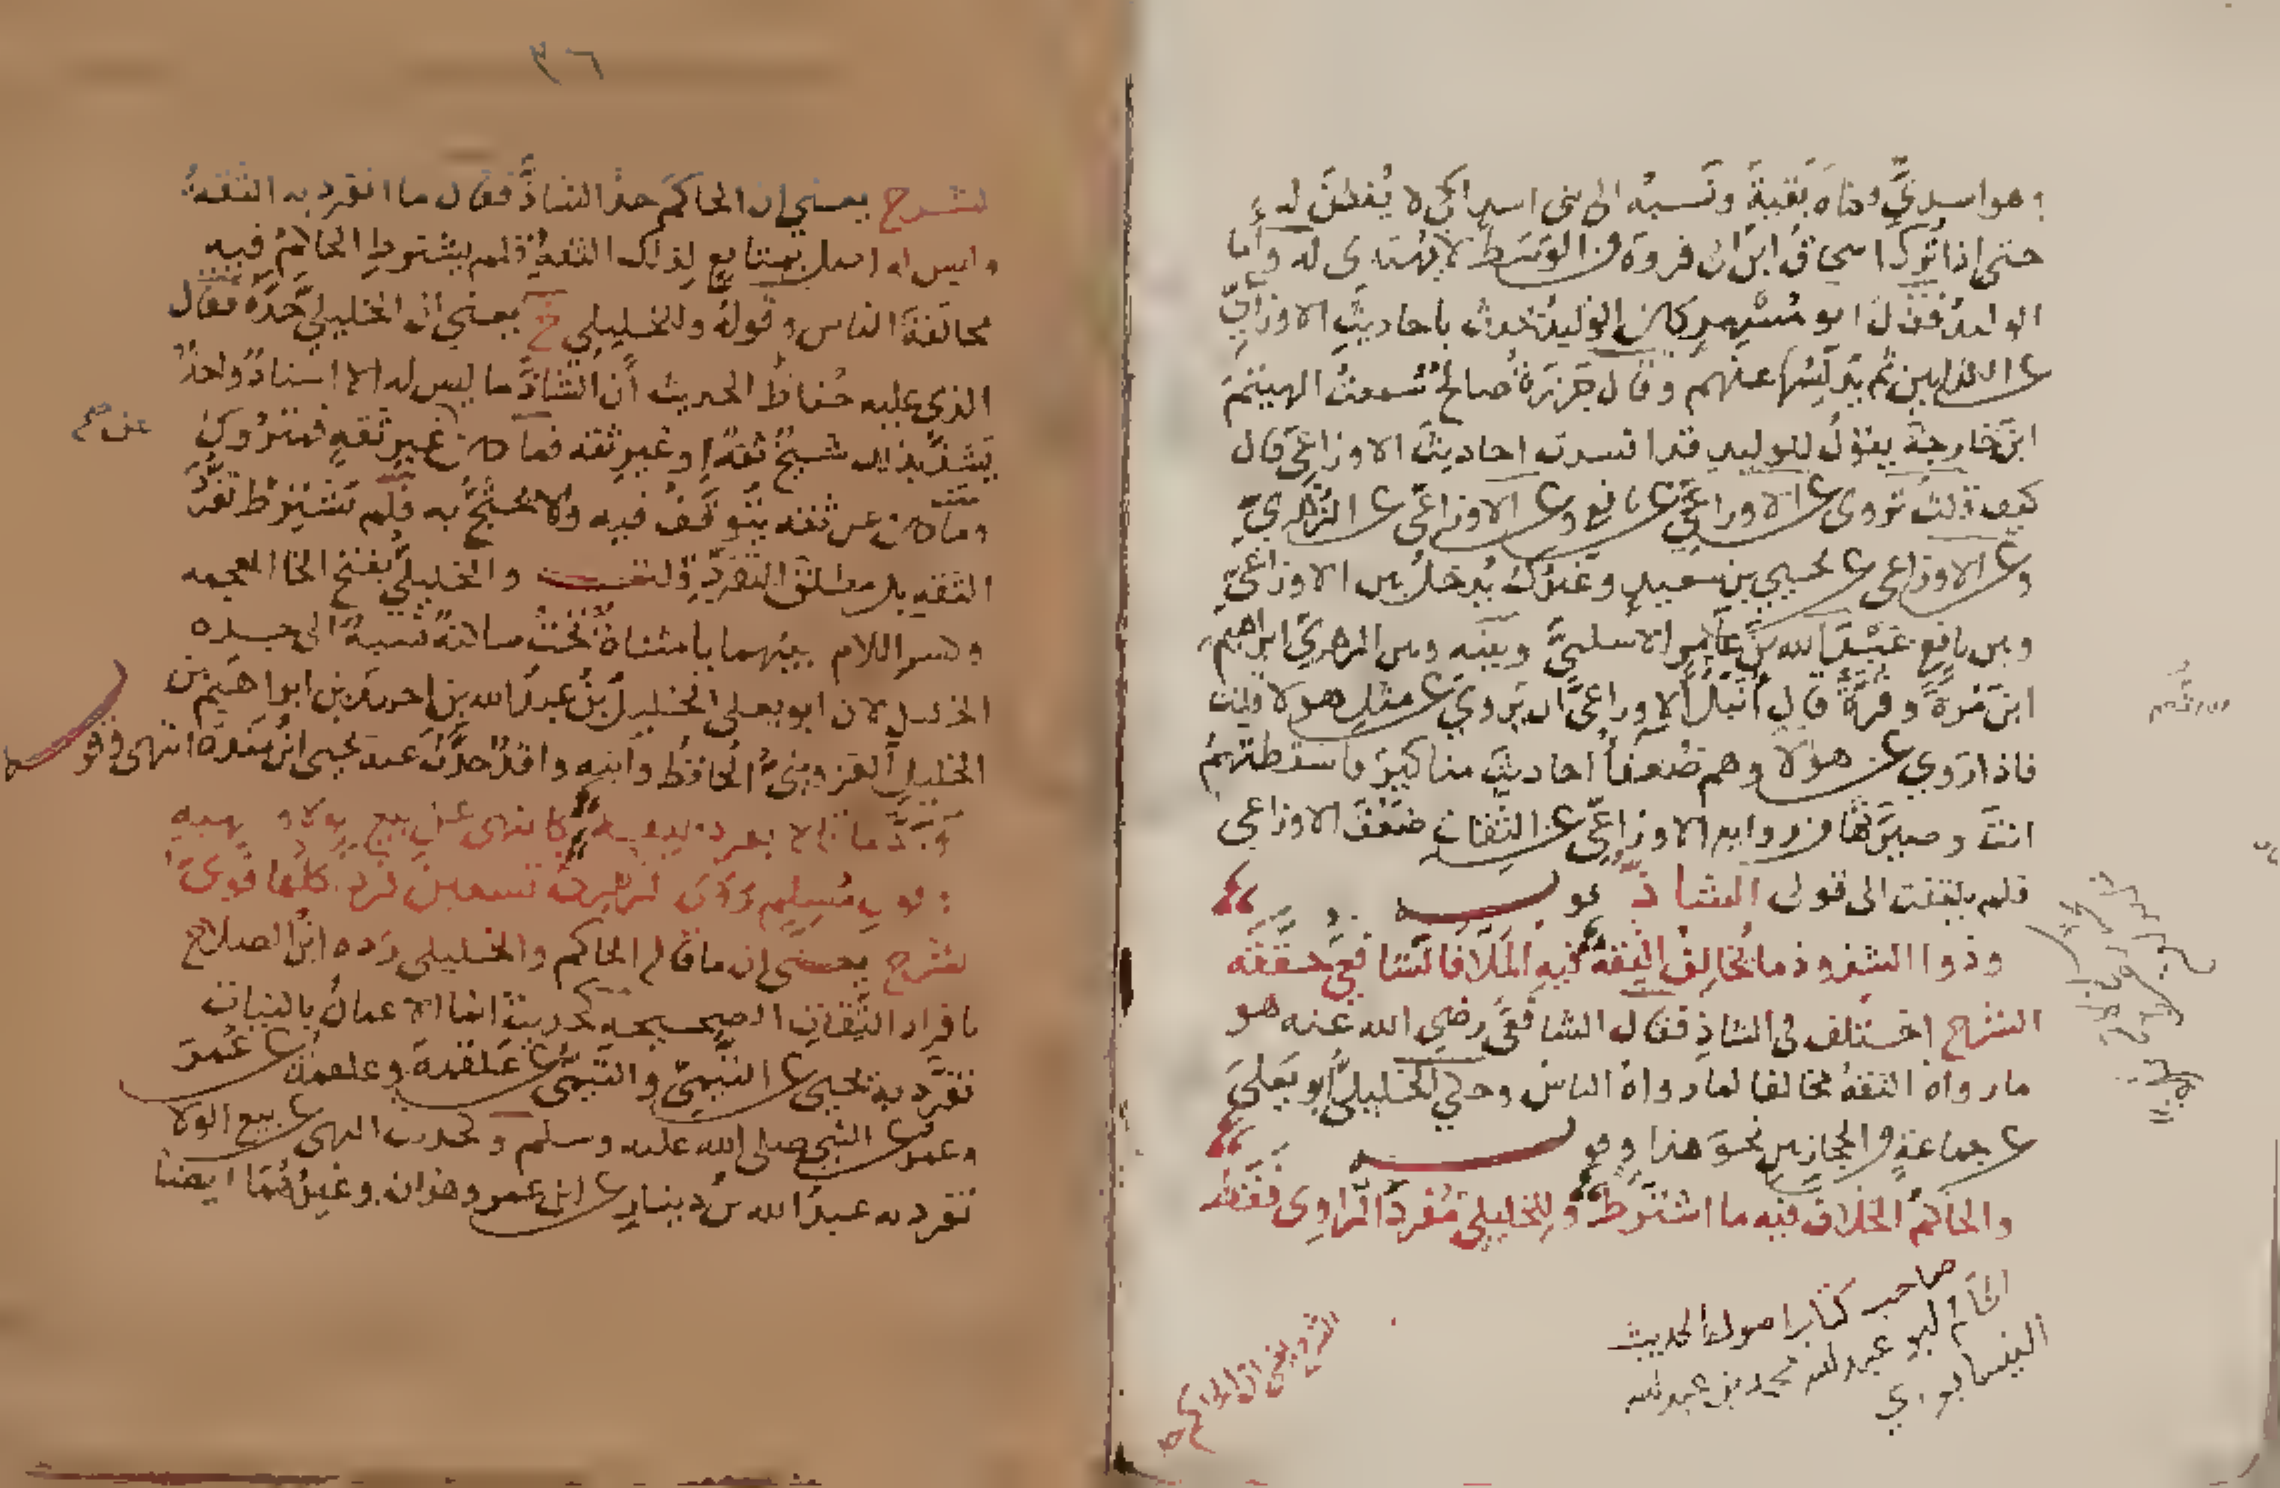 وهو اسديٌّ وكناه بقية ونسبه الى بني اسد لكي لا يُفطن له
حتى اذا تُرك اسحاق ابن ابي فروة من الوسط لا يُهتدى له وأما
الوليد فقال ابو مُسْهِرٍ كان الوليد يُحدث باحاديث الاوزاعيّ
عن الكذابين ثم يُدلّسها عنهم وقال جَزَرَةُ صالحٌ سمعتُ الهيثم
ابن خارجة يقولُ للوليد قد افسدت احاديث الاوزاعي قال
كيف قلتُ تروى عن الاوزاعي عن نافع وعن الاوزاعي عن الزهريّ
وعن الاوزاعي عن يحيى بن سعيد وغيرك يُدخلُ بين الاوزاعي
وبين نافع عبد الله بن عامر الاسلميَّ وبينه وبين الزهري ابراهيم
ابن مُرة وقُرّة قال اُنَبِّلُ الاوزاعيَّ ان يَروي عن مثل هولا قلت
فاذا روي عن هولا وهم ضُعفا احاديث مناكير فاسقطتهم
انت وصيرتها من رواية الاوزاعي عن الثقات ضُعّفَ الاوزاعي
فلم يلتفت الى قولي الشاذ قو
وذوا الشذوذ ما يُخالِفُ الثقةُ فيه الملا فالشافعي حققه
الشرح اختلف في الشاذ فقال الشافعي رضي الله عنه هو
ما رواه الثقةُ مخالفا لما رواهُ الناس وحكي الخليليُّ ابو يعلى
عن جماعةٍ من الحجازيين نحو هذا قو
والحاكمُ الخلاف فيه ما اشترط وللخليلي مُفردُ الراوي فقط
صاحب كتاب اصول الحديث
الحاكم ابو عبد الله محمد بن عبد الله
النيسابوري
٣٦
لشرح يعني ان الحاكم حدّ الشاذَّ فقال ما انفرد به الثقةُ
وليس له اصل بمتابع لذلك الثقة فلم يشترط الحاكمُ فيه
مخالفة الناس وقوله وللخليلي خ يعني ان الخليليَّ حَدَّهُ فقال
الذي عليه حُفاظُ الحديث أن الشاذَّ ما ليس له الا اسنادٌ واحدٌ
يَشذُّ بذلك شيخٌ ثقةٌ او غير ثقه فما كان عن غير ثقةٍ فمتروكٌ
وما كان عن ثقه يتوقف فيه ولا يحتج به فلم تشترط تفرُّد
الثقه بل مطلق التفرّدِ قلت والخليليُّ بفتح الخا المعجمه
وكسر اللام بينهما يا مثناةٌ تحتُ ساكنةٌ نسبةً الى جده
الخليل لان ابو يعلى الخليل بنُ عبد الله بن احمد بن ابراهيم بن
الخليل القزوينيُّ الحافظُ وابنه واقدٌ حدّث عنه يحيى ابنُ منده انتهى قو
كالنهى عن بيع ولاء وهبه
مسلم رَوَى الزهريُّ تسعين فرد كلها قوىّ
لشرح يعني ان ما قال الحاكم والخليلي رَده ابنُ الصلاح
بافراد الثقات الصحيحه كحديث انما الاعمالُ بالنيات
تفرّد به يحيى عن التيميّ والتيميّ عن علقمة وعلقمةُ عن عُمرَ
وعمر عن النبي صلى الله عليه وسلم وكحديث النهي عن بيع الولا
تفرد به عبدُ الله بن دينار عن ابن عمر وهذان وغيرُهُما ايضا